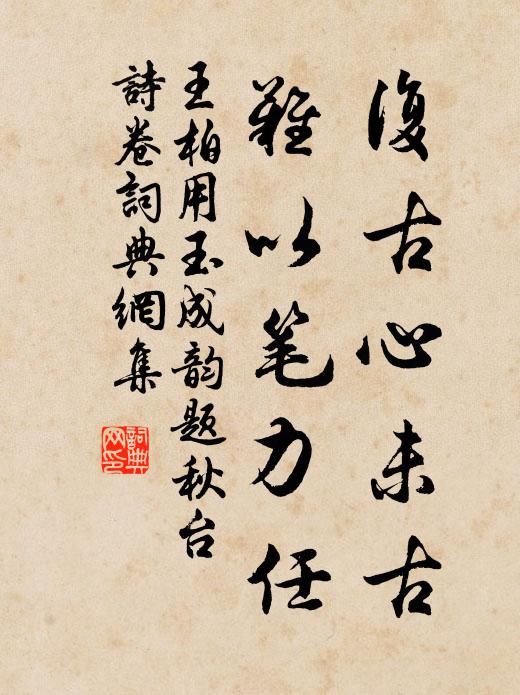 復古心未古
難以笔力任
王柏用玉成韵题秋台
詩卷詞典網集
詞典网印